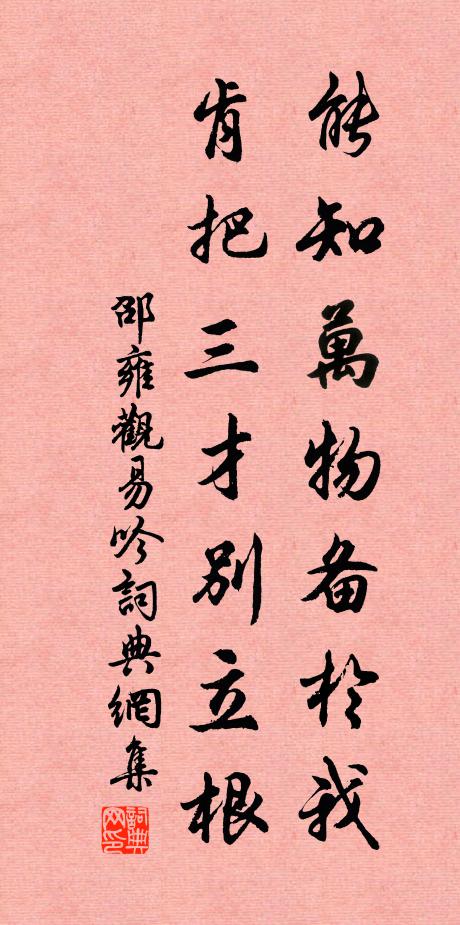 能知萬物备於我
肯把三才别立根
邵雍觀易吟詞典網集
詞典網印